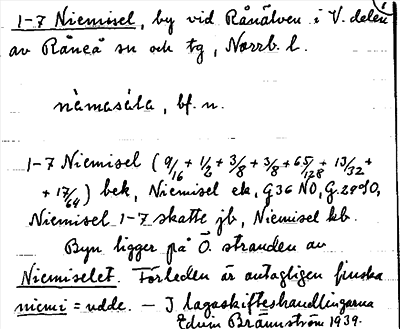 1
1-7 Niemisel, by vid Råneälven i V. delen
av Råneå sn och tg, Norrb. l.
nìemasǻla, bf. n.
1-7 Niemisel (9/16 + 1/2 + 3/8 + 3/8 + 65/128 + 13/32 +
+ 17/64) bek, Niemisel ek, G36 NO, G.29 SO,
Niemisel 1-7 skatte jb, Niemisel kb.
Byn ligger på Ö. stranden av
Niemiselet. Förleden är antagligen finska
niemi = udde. - I lagaskifteshandlingarna
Edvin Brännström 1939.